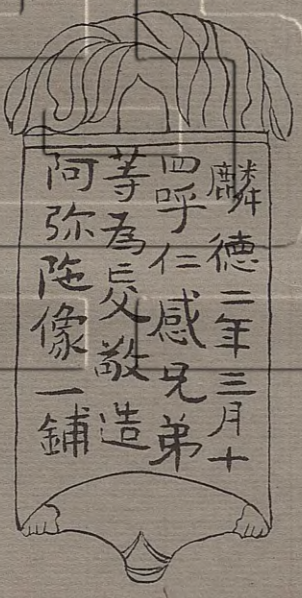 麟德二年三月十
四呼仁感兄弟
等為亡父敬造
阿弥陁像一鋪